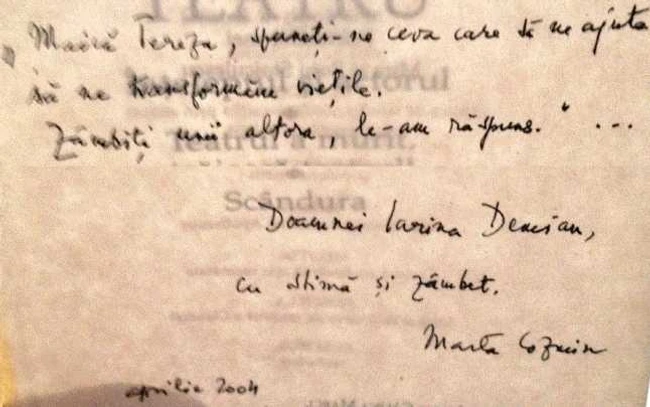 TEATRU
„Maică Tereza, spuneți-ne ceva care să ne ajute
să ne transformăm viețile.
Zâmbiți unii altora, le-am răspuns." ...
Teatrul a murit.
Scândura
Doamnei Iarina Demian,
cu stimă și zâmbet.
Marta
aprilie 2004